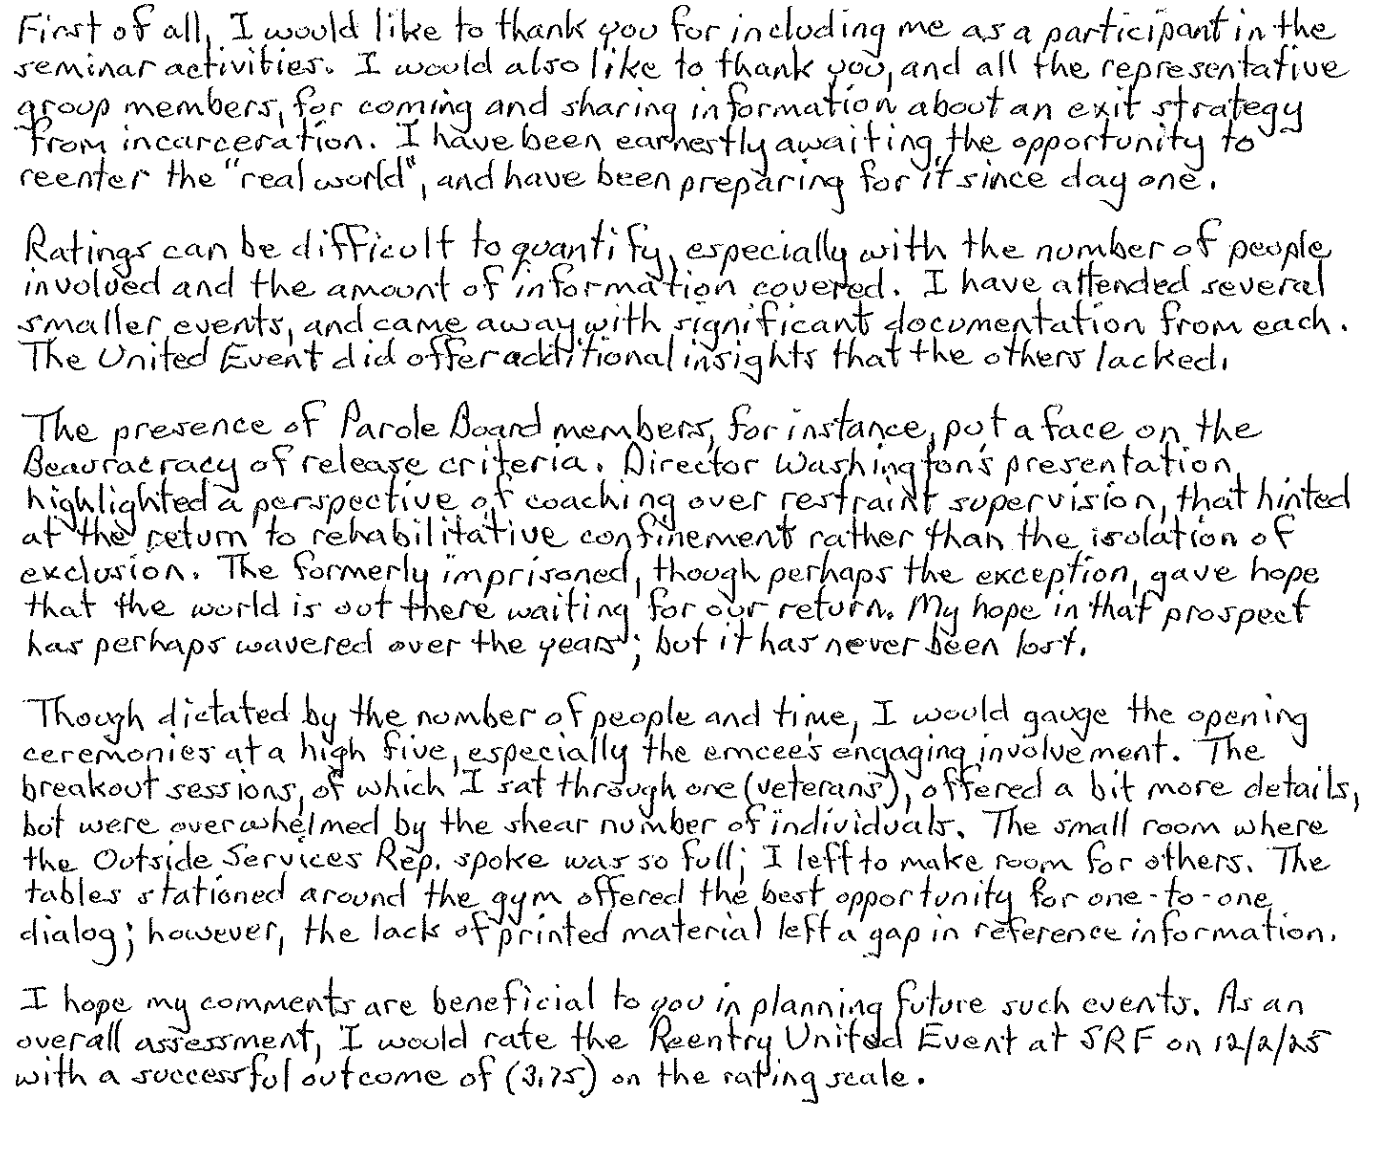 First of all, I would like to thank you for including me as a participant in the
seminar activities. I would also like to thank you, and all the representative
group members, for coming and sharing information about an exit strategy
from incarceration. I have been earnestly awaiting the opportunity to
reenter the "real world", and have been preparing for it since day one.
Ratings can be difficult to quantify, especially with the number of people
involved and the amount of information covered. I have attended several
smaller events, and came away with significant documentation from each.
The United Event did offer additional insights that the others lacked.
The presence of Parole Board members, for instance, put a face on the
Beauracracy of release criteria. Director Washington's presentation
highlighted a perspective of coaching over restraint supervision, that hinted
at the return to rehabilitative confinement rather than the isolation of
exclusion. The formerly imprisoned, though perhaps the exception, gave hope
that the world is out there waiting for our return. My hope in that prospect
has perhaps wavered over the years; but it has never been lost.
Though dictated by the number of people and time, I would gauge the opening
ceremonies at a high five, especially the emcee's engaging involvement. The
breakout sessions, of which I sat through one (veterans), offered a bit more details,
but were overwhelmed by the shear number of individuals. The small room where
the Outside Services Rep. spoke was so full; I left to make room for others. The
tables stationed around the gym offered the best opportunity for one-to-one
dialog; however, the lack of printed material left a gap in reference information.
I hope my comments are beneficial to you in planning future such events. As an
overall assessment, I would rate the Reentry United Event at SRF on 12/2/25
with a successful outcome of (3.75) on the rating scale.